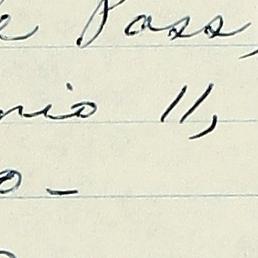 e Poss,
nio 11,
o -